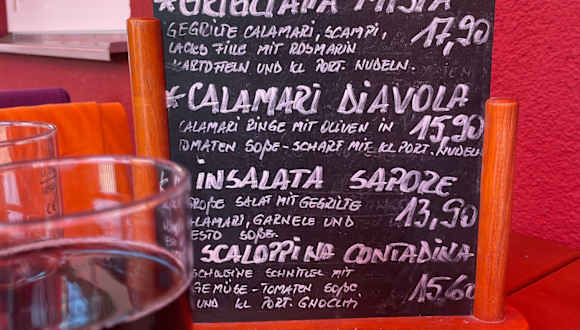 *GRIGLIATA MISTA
GEGRILTE CALAMARI, SCAMPI, 17,90
LACHS FILE MIT ROSMARIN
KARTOFFELN UND KL PORT. NUDELN.
*CALAMARI DIAVOLA
CALAMARI RINGE MIT OLIVEN IN 15,90
TOMATEN SOßE-SCHARF MIT KL PORT. NUDELN
INSALATA SAPORE
GROßE SALAT MIT GEGRILTE
CALAMARI, GARNELE UND 13,90
PESTO SOßE.
SCALOPPINA CONTADINA
SCHWEINE SCHNITZEL MIT
GEMÜSE-TOMATEN SOßE 15,60
UND KL PORT. GNOCCHI